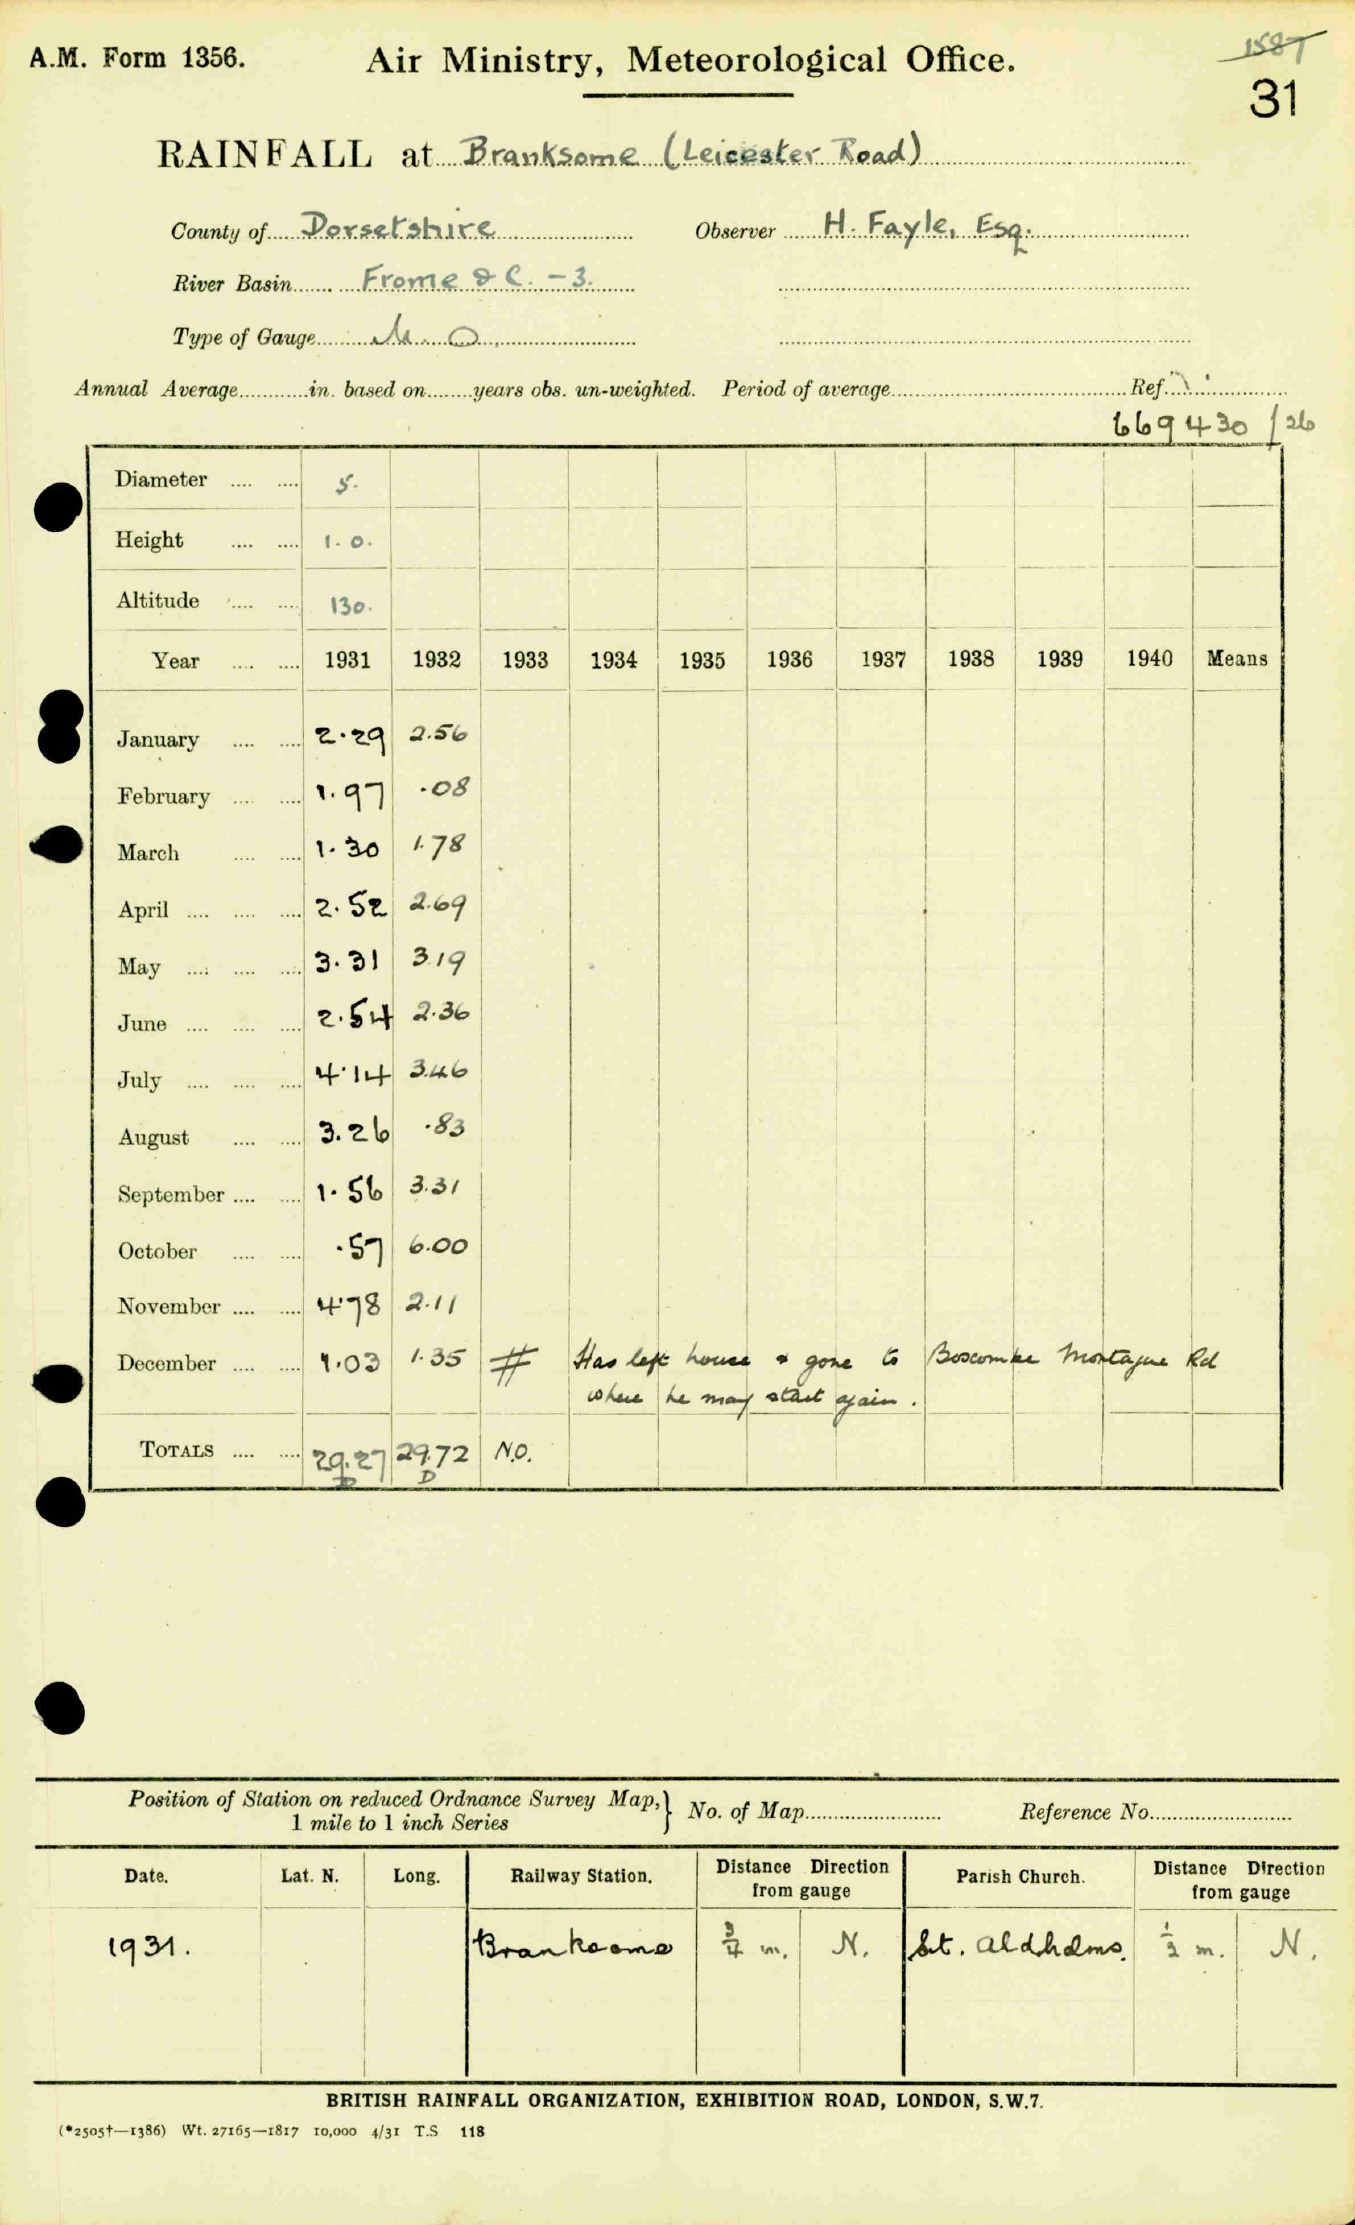 A.M. Form 1356. Air Ministry, Meteorological Office. 1587
31
RAINFALL at Branksome (Leicester Road)
County of Dorsetshire Observer H. Fayle, Esq.
River Basin Frome & C. - 3.
Type of Gauge M. O.
Annual Average in. based on years obs. un-weighted. Period of average Ref.
669430 / 26
Diameter 5.
Height 1.0.
Altitude 130.
Year 1931 1932 1933 1934 1935 1936 1937 1938 1939 1940 Means
January 2.29 2.56
February 1.97 .08
March 1.30 1.78
April 2.52 2.69
May 3.31 3.19
June 2.54 2.36
July 4.14 3.46
August 3.26 .83
September 1.56 3.31
October .57 6.00
November 4.78 2.11
December 1.03 1.35 # Has left house & gone to Boscombe Montague Rd
where he may start again.
TOTALS 29.27 29.72 N.O.
D D
Position of Station on reduced Ordnance Survey Map, } No. of Map Reference No.
1 mile to 1 inch Series
Date. Lat. N. Long. Railway Station. Distance Direction from gauge Parish Church. Distance Direction from gauge
1931. Branksome 3/4 m. N. St. Aldhelms. 1/2 m. N.
BRITISH RAINFALL ORGANIZATION, EXHIBITION ROAD, LONDON, S.W.7.
(*2505†—1386) Wt. 27165—1817 10,000 4/31 T.S 118